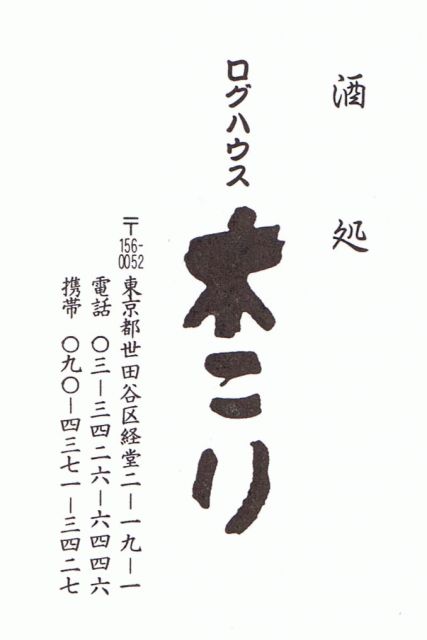 酒処
ログハウス
木こり
〒156-0052 東京都世田谷区経堂二―一九―一
電話 〇三―三四二六―六四四六
携帯 〇九〇―四三七一―三四二七